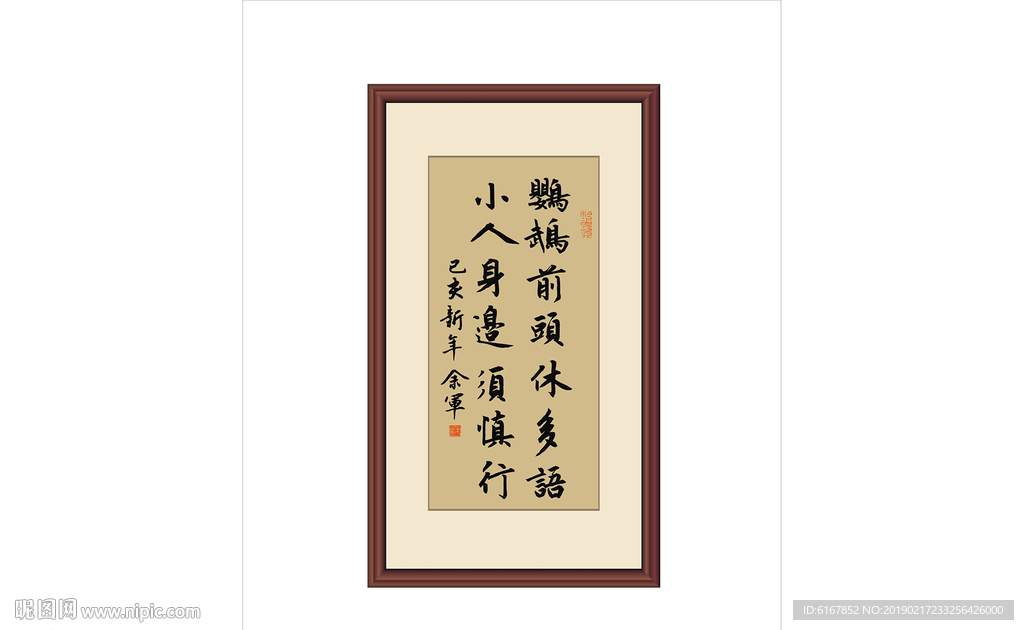 鸚鵡前頭休多語
小人身邊須慎行
己亥新年 余軍
昵图网 www.nipic.com
ID:6167852 NO:20190217233256426000